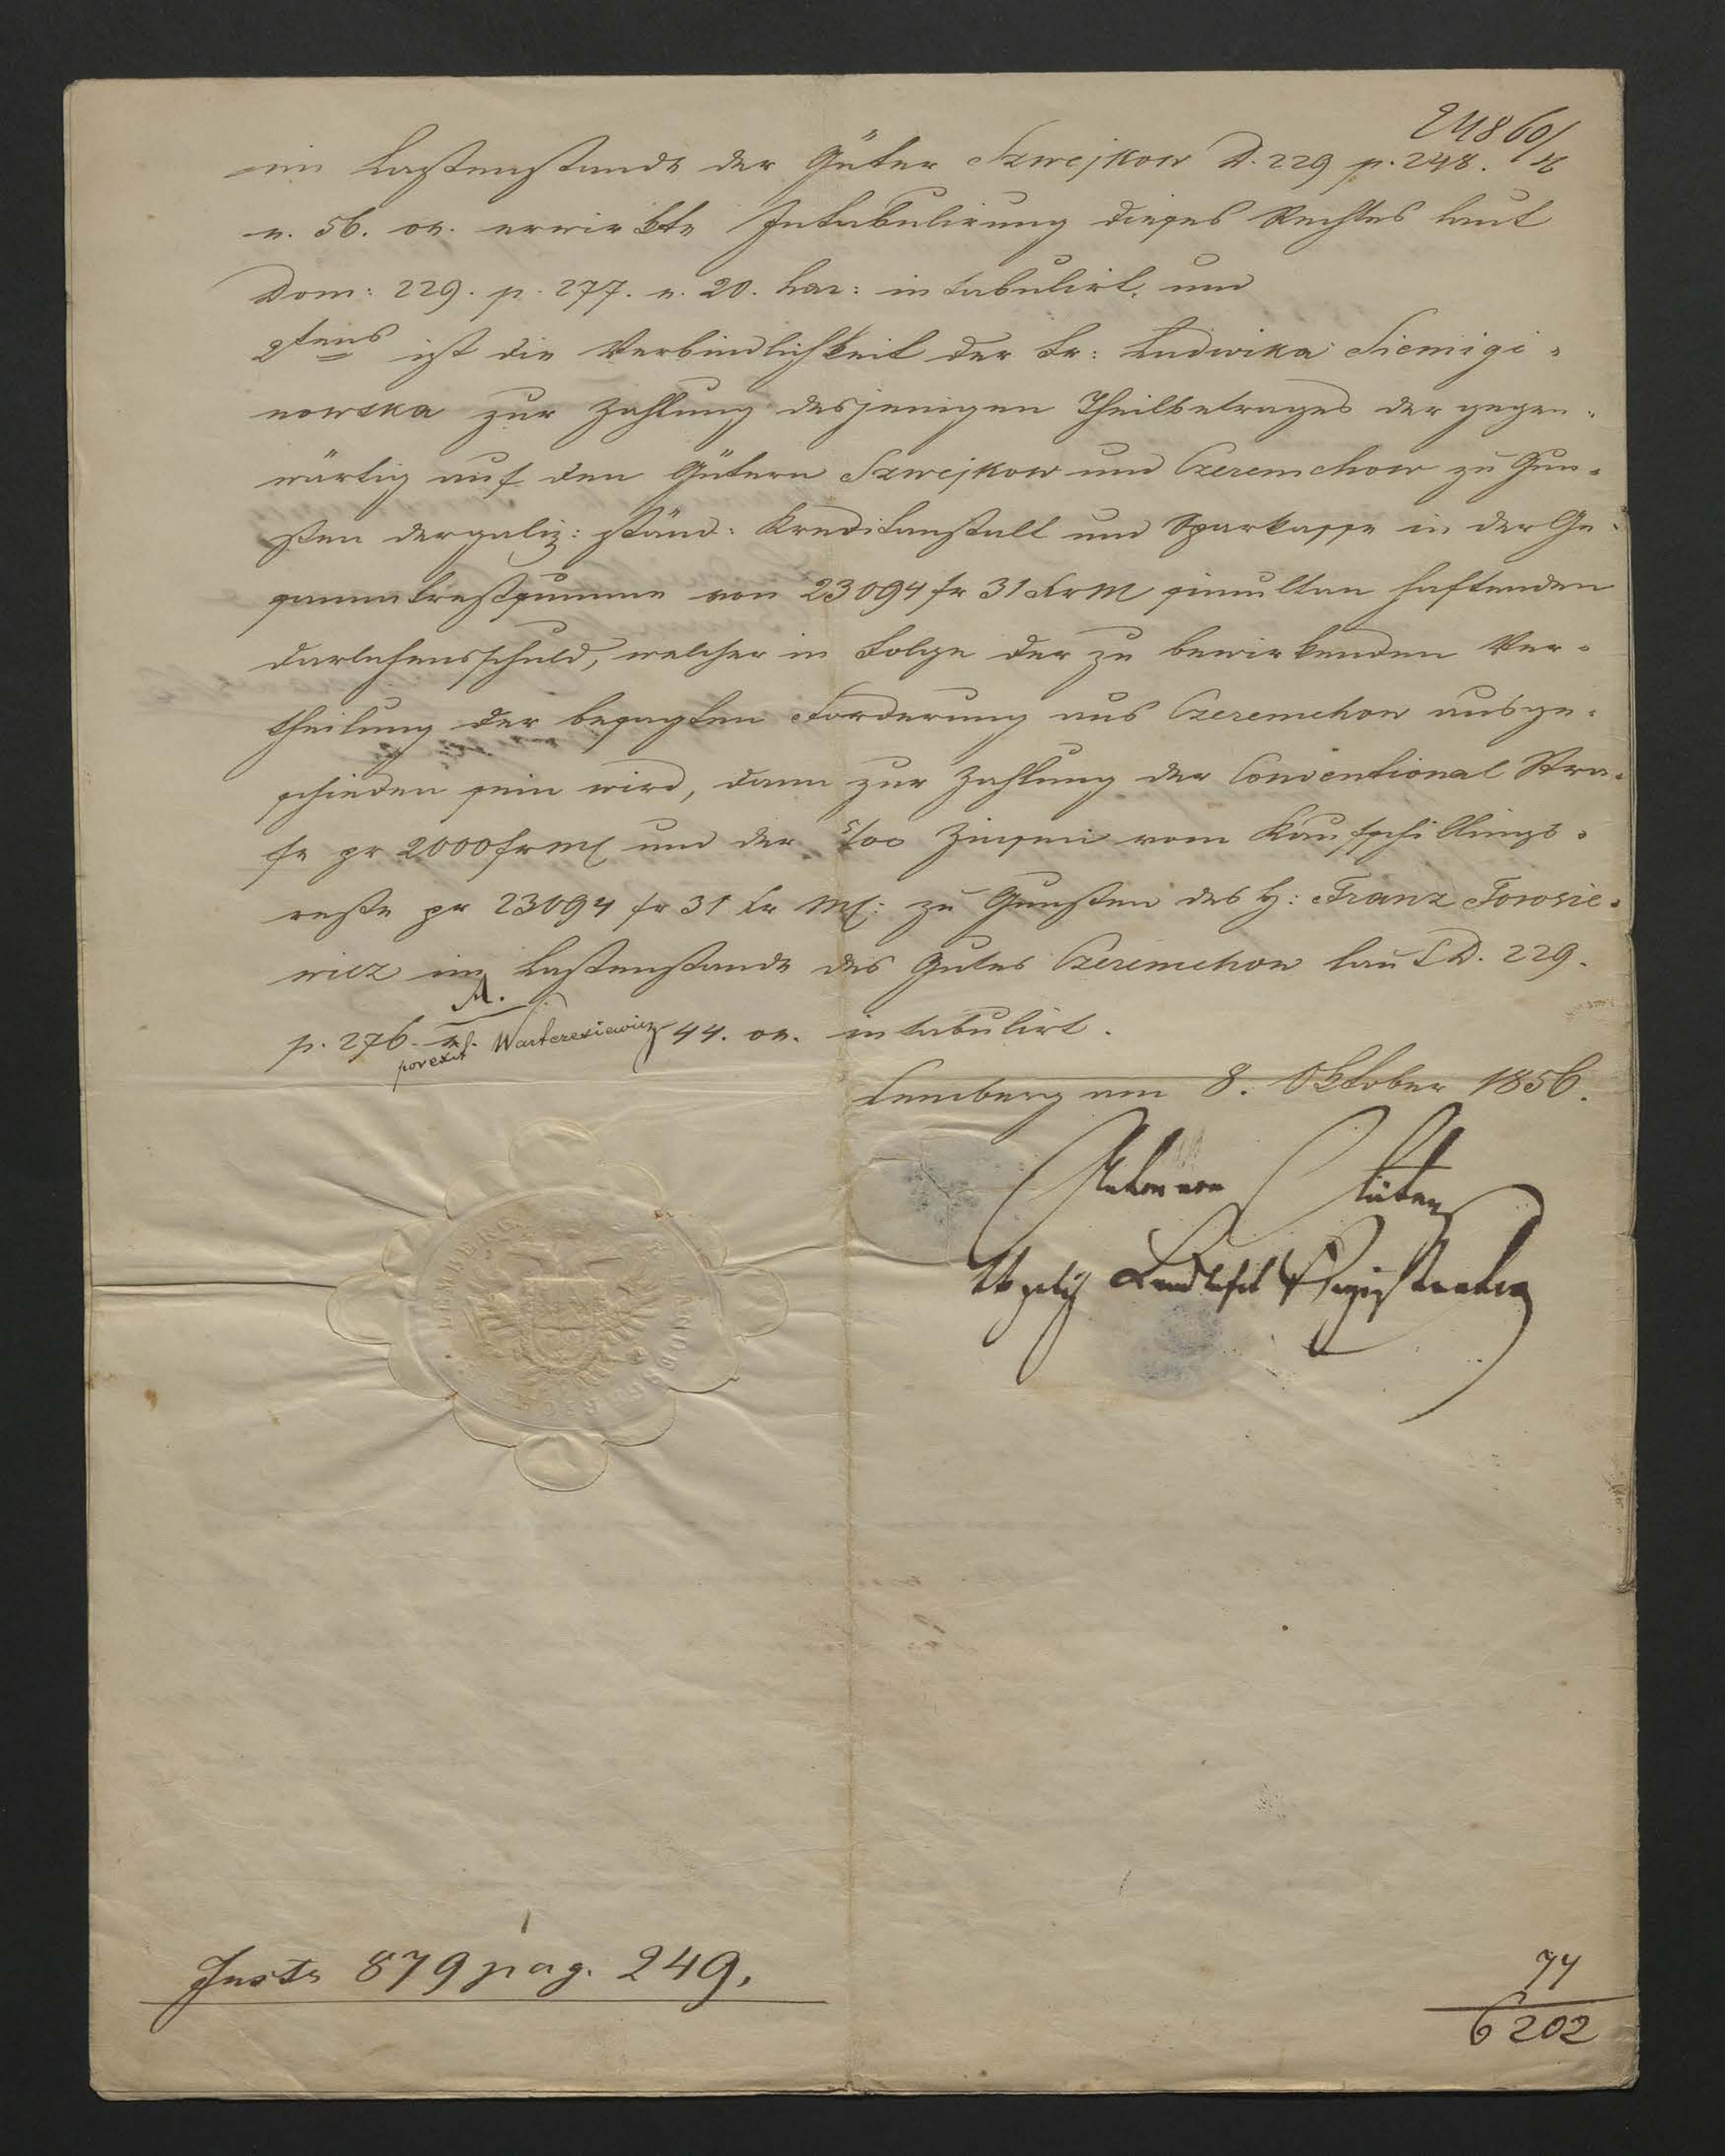 24860/
im Lastenstande der Güter Szwejkow D. 229 p. 248.
n. 56. on. erwirkte Intabulirung dieses Rechtes laut
Dom: 229. p. 277. n. 20. har: intabulirt, und
2tens ist die Verbindlichkeit der Fr: Ludwika Siemigi=
nowska zur Zahlung desjenigen Theilbetrages der gegen=
wärtig auf den Gütern Szwejkow und Czeremchow zu Gun=
sten der galiz: ständ: Kreditanstalt und Sparkasse in der Ge=
sammtrestsumme von 23094 fr 31 Xr M simultan haftenden
Darlehensschuld, welcher in Folge der zu bewirkenden Ver=
theilung der besagten Forderung aus Czeremchow ausge=
schieden sein wird, dann zur Zahlung der Conventional Stra=
fe pr 2000 fr Mz und der 5/00 Zinsen vom Kaufschillings=
reste pr 23094 fr 31 Xr Mz: zu Gunsten des H: Franz Torosie=
wicz im Lastenstande des Gutes Czeremchow laut D. 229.
p. 276. n. 44. on. intabulirt.
porexit Warteresiewicz
Lemberg am 8. Oktober 1856.
Landtafel Registrator
LEMBERG
Inste 879 pag. 249.
74
6202